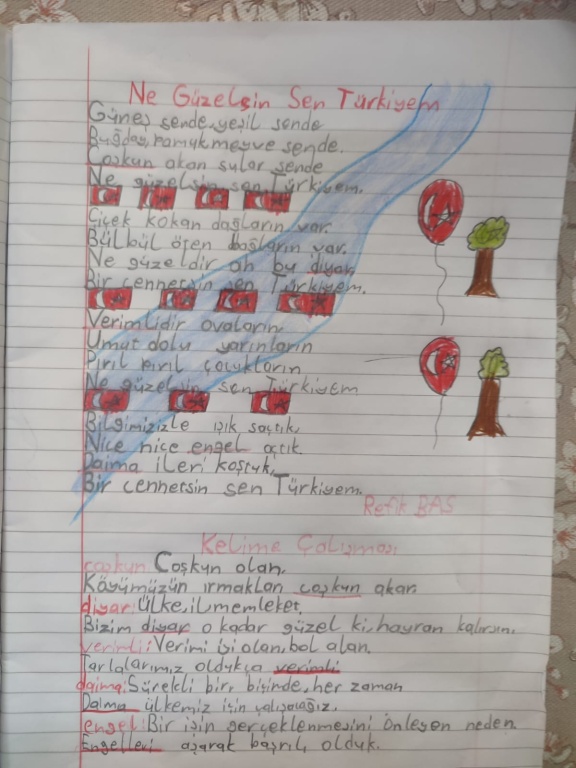 Ne Güzelsin Sen Türkiyem
Güneş sende, yeşil sende
Buğday, pamuk meyve sende.
Coşkun akan sular sende
Ne güzelsin sen Türkiyem.
Çiçek kokan dağların var.
Bülbül öten bağların var.
Ne güzeldir oh bu diyar
Bir cennetsin sen Türkiyem.
Verimlidir ovaların
Umut dolu yarınların
Pırıl pırıl çocukların
Ne güzelsin sen Türkiyem
Bilgimizizle ışık saçtık.
Nice nice engel açtık
Daima ileri koştuk,
Bir cennetsin sen Türkiyem.
Refik BAS
Kelime Çalışması
coşkun: Coşkun olan.
Köyümüzün ırmakları coşkun akar.
diyar: Ülke, il, memleket.
Bizim diyar o kadar güzel ki, hayran kalırsın.
verimli: Verimi iyi olan, bol alan.
Tarlalarımız oldukça verimli
daima: Sürekli birr biçinde, her zaman
Daima ülkemiz için çalışacağız.
engel: Bir işin gerçeklenmesini önleyen neden.
Engelleri aşarak başrılı olduk.